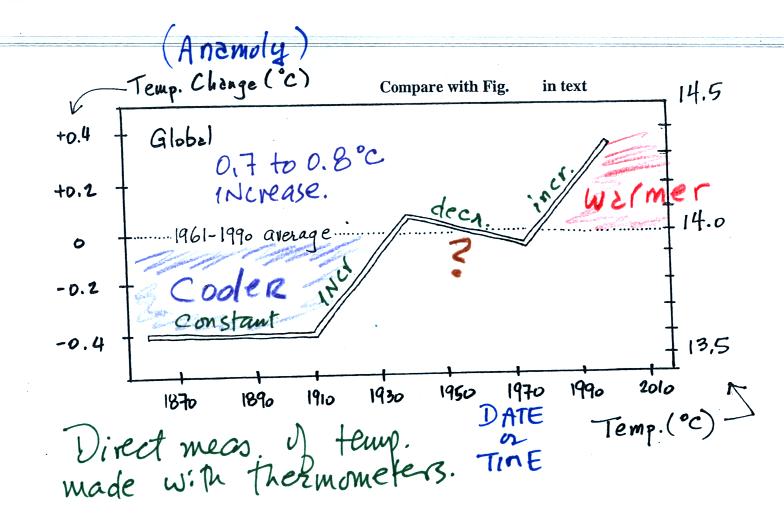 (Anamoly)
Temp. Change (°C)
Compare with Fig. in text
14.5
+0.4
Global
0.7 to 0.8°C
INcrease.
+0.2
incr.
Warmer
decr.
14.0
0
1961-1990 average
?
-0.2
Cooler
INCr
constant
-0.4
13,5
1870 1890 1910 1930 1950 1970 1990 2010
DATE
or
TIME
Temp. (°C)
Direct meas. of temp.
made with thermometers.